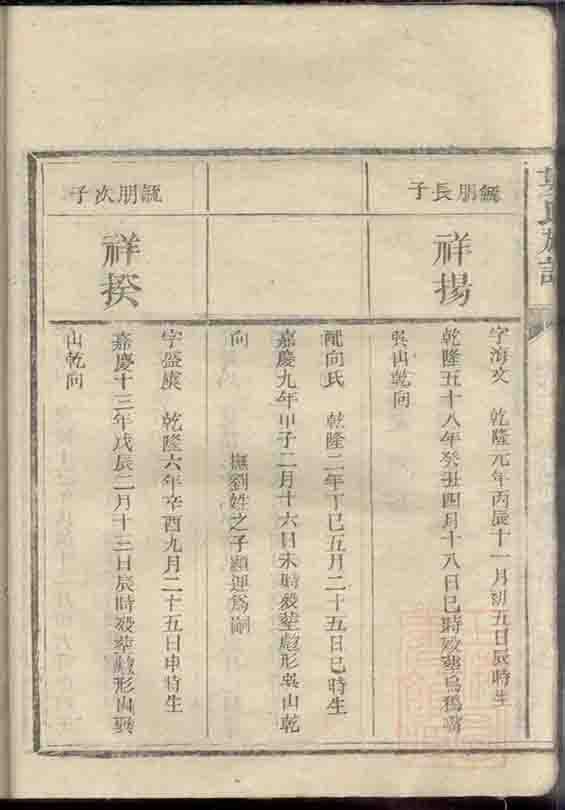 氏族譜
毓朋長子
祥揚
字海文 乾隆元年丙辰十一月初五日辰時生
乾隆五十八年癸丑四月十八日巳時歿塟烏
吳山乾向
配向氏 乾隆二年丁巳五月二十五日巳時生
嘉慶九年甲子二月十六日未時歿塟形吳山乾
向 撫劉姓之子顯運爲嗣
毓朋次子
祥揆
字盛虞 乾隆六年辛酉九月二十五日申時生
嘉慶十三年戊辰二月十三日辰時歿塟形山巽
山乾向